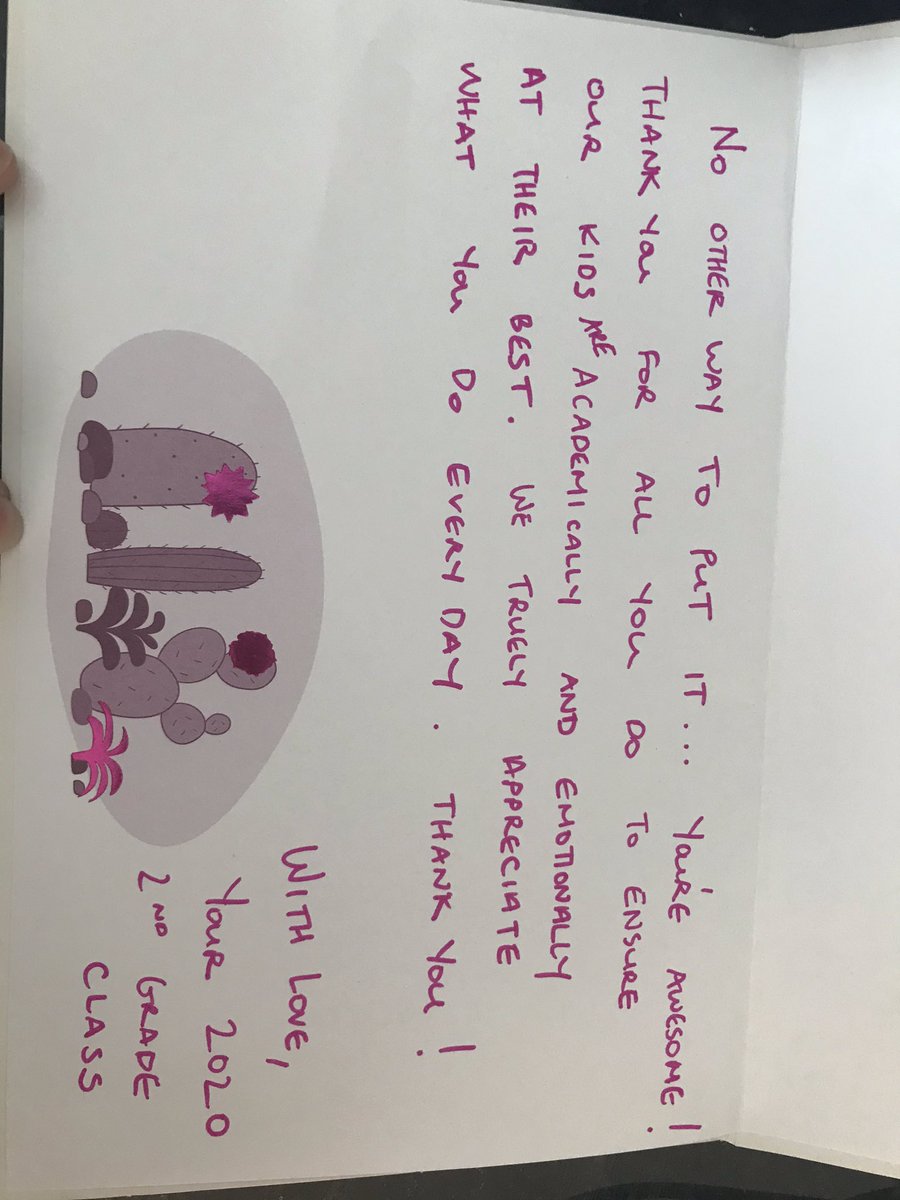 NO OTHER WAY TO PUT IT... YOU'RE AWESOME!
THANK YOU FOR ALL YOU DO TO ENSURE
OUR KIDS ARE ACADEMICALLY AND EMOTIONALLY
AT THEIR BEST. WE TRUELY APPRECIATE
WHAT YOU DO EVERY DAY. THANK YOU!
WITH LOVE,
YOUR 2020
2ND GRADE
CLASS